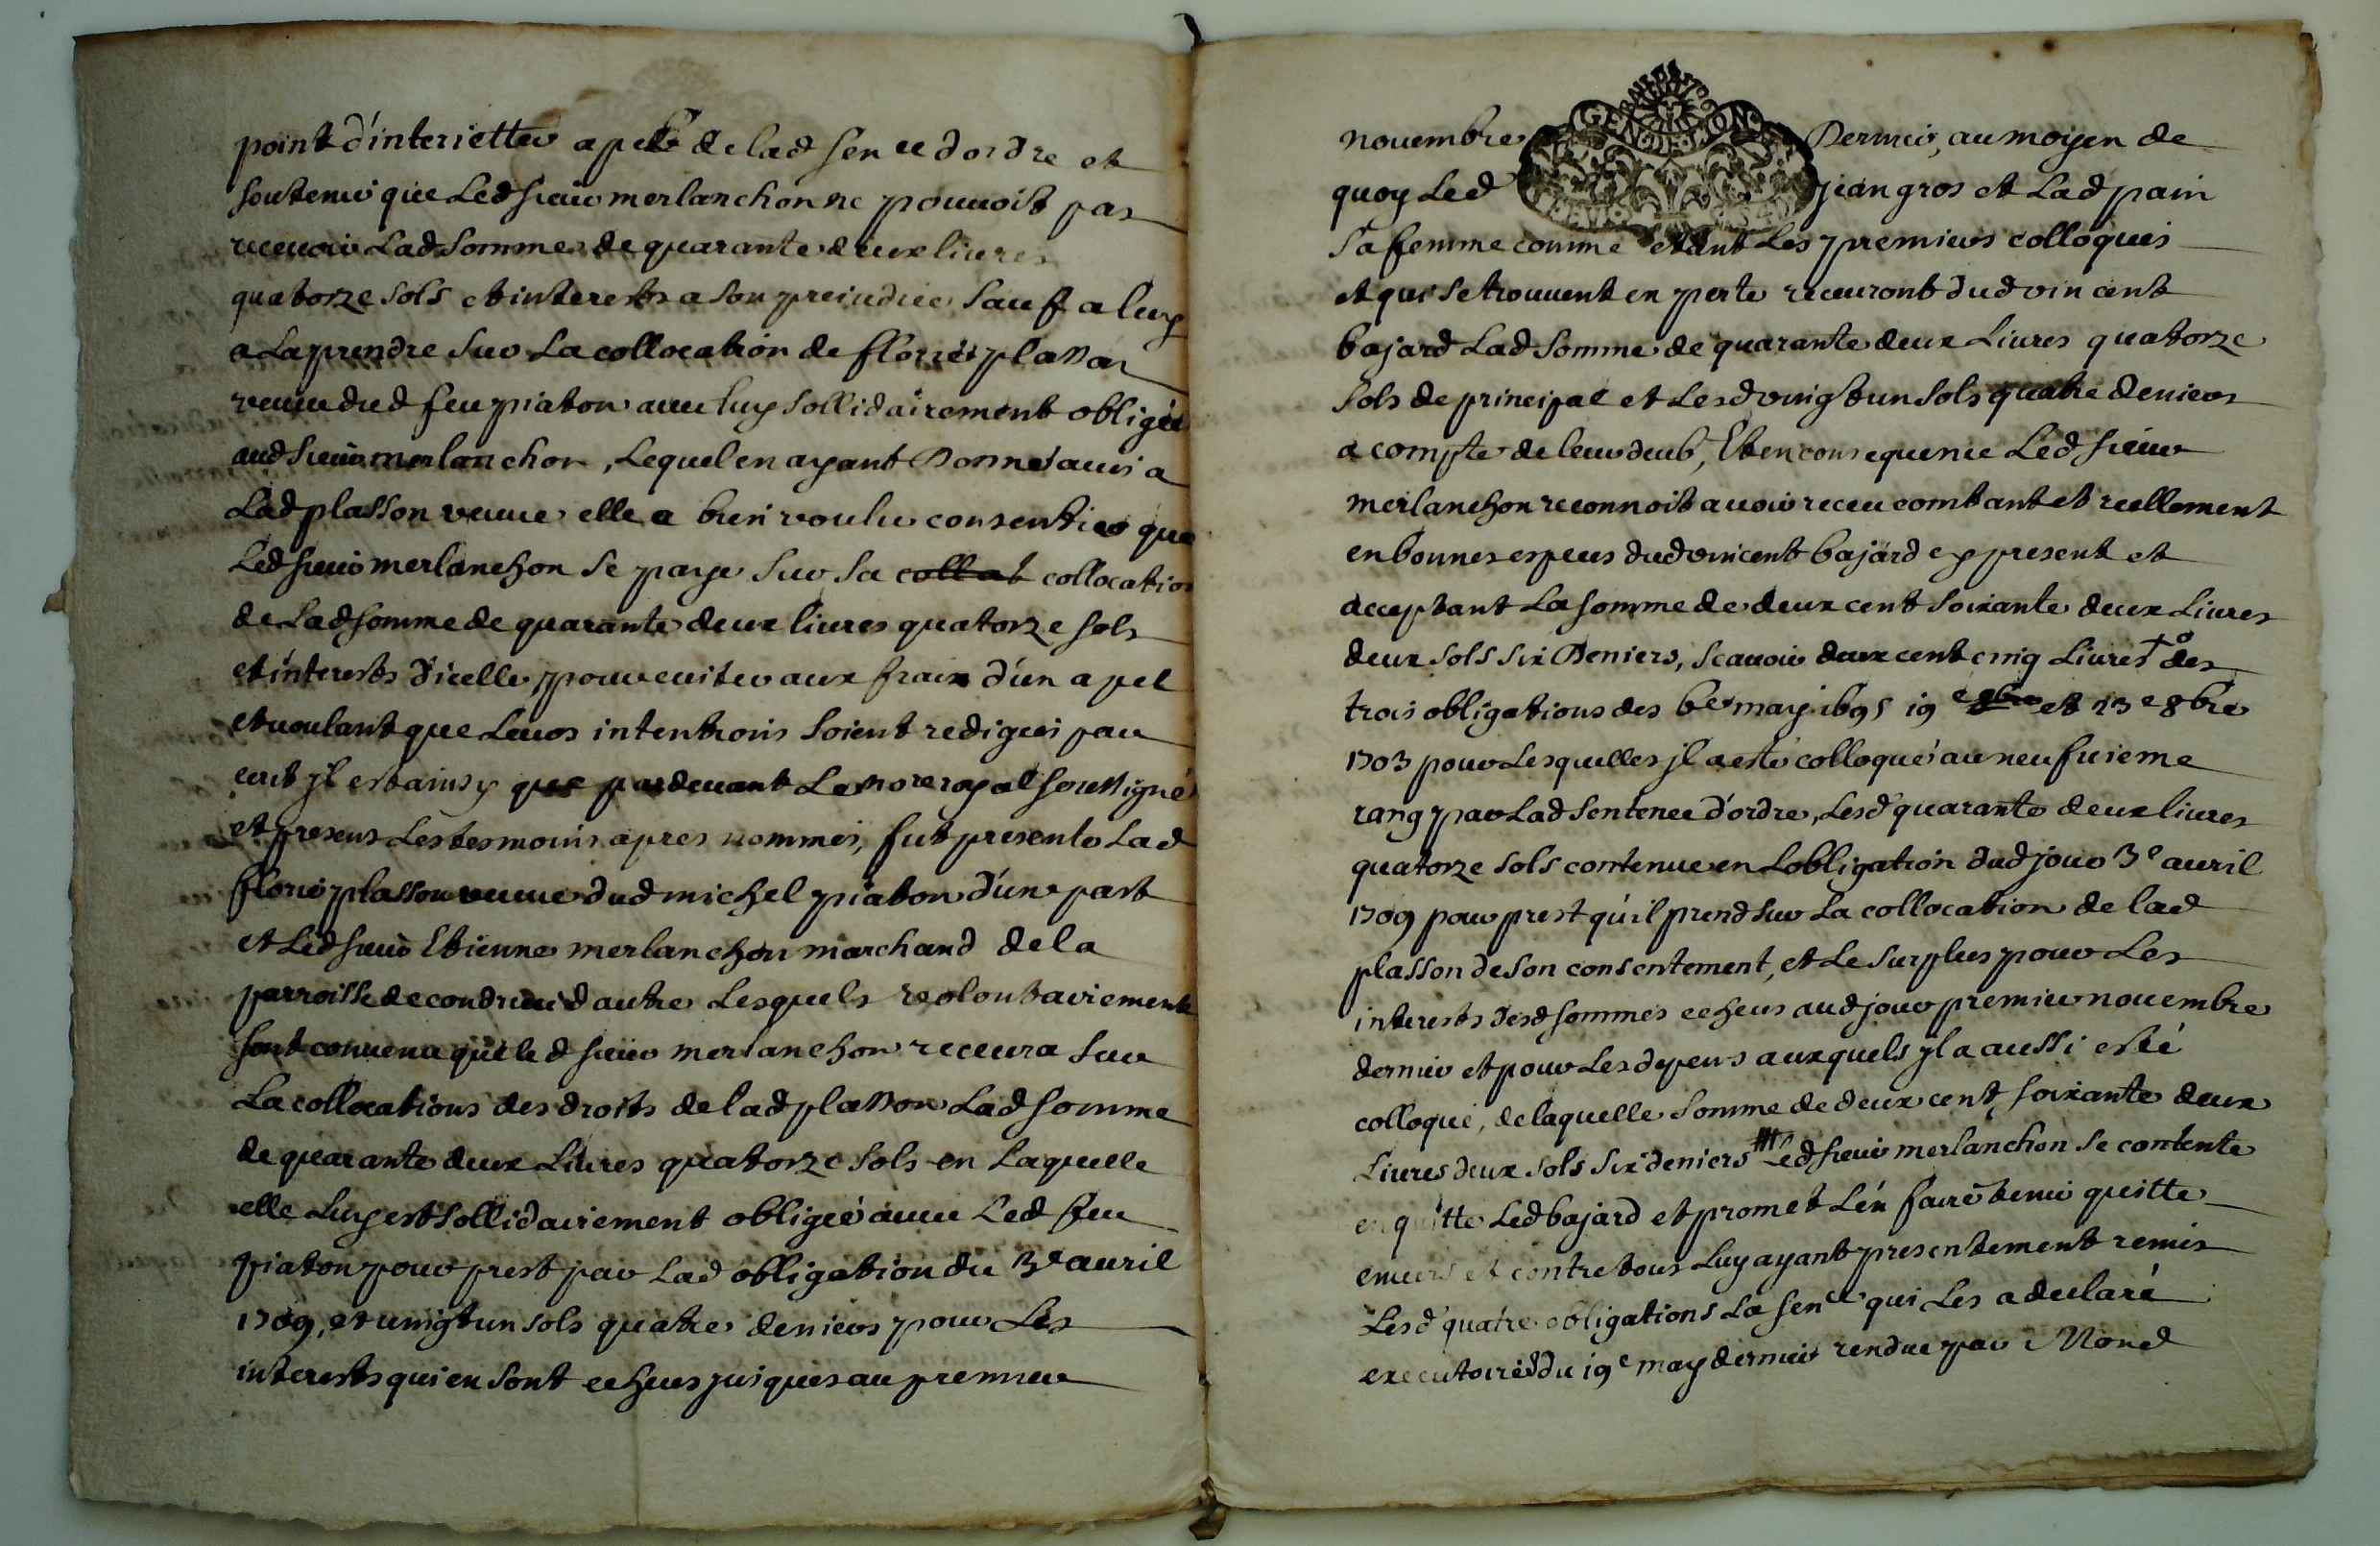 point d'interietter apel de lad sen ce dordre et
soutenir que Led sieur merlanchon ne pouuoit pas
receuoir Lad Somme de quarante deux liures
quatorze sols et interests a son preiudice sauf a luy
a La prendre sur La collocation de florie plasson
veuue dud feu piaton auec luy sollidairement obligée
aud sieur merlanchon, Lequel en ayant Donné auis a
Lad plasson veuue elle a bien voulu consentir que
Led sieur merlanchon se paye sur sa collat collocation
de Lad somme de quarante deux liures quatorze sols
et interests d'icelle pour euiter aux frais d'un apel
et voulant que Leurs intentions soient redigées par
ecrit jl est ainsy que pardeuant Le nore royal soussigné
et presens Les tesmoins apres nommes, fut presente Lad
florie plasson veuue dud michel piaton d'une part
et Led sieur Etienne merlanchon marchand de la
parroisse de condrieu d autre Lesquels volontairement
sont conuenu que le d sieur merlanchon receura sur
La collocations des droits de lad plasson Lad somme
de quarante deux Liures quatorze sols en Laquelle
elle Luy est sollidairement obligée auec Led feu
piaton pour prest par Lad obligation du 3e auril
1709, et vingt un sols quatre deniers pour Les
interests qui en sont echeus jusques au premier
nouembre Dernier, au moyen de
quoy Led jean gros et Lad pain
Sa femme comme etant Les premiers colloques
et qui se trouuent en perte receuront dud vincent
bajard Lad Somme de quarante deux Liures quatorze
sols de principal et Lesd vingt un sols quatre deniers
a compte de leur deub, Et en consequence Led sieur
merlanchon reconnoit auoir receu comtant et reellement
en bonnes espeses dud vincent bajard cy present et
acceptant La somme de deux cent soixante deux Liures
deux sols six Deniers, scauoir deux cent cinq Liures des
trois obligations des 6e may 1695 19e 9bre et 23e 8bre
1703 pour Lesquelles jl a esté colloqué au neufuieme
rang par Lad Sentence d'ordre, Lesd quarante deux liures
quatorze sols contenue en Lobligation dud jour 3e auril
1709 pour prest qu'il prend sur La collocation de lad
plasson de son consentement, et Le surplus pour Les
interests desd sommes echeus aud jour premier nouembre
dernier et pour Les depens auxquels jl a aussi esté
colloqué, de laquelle somme de deux cent soixante deux
Liures deux sols six deniers Led sieur merlanchon se contente
en quitte Led bajard et promet L'en faire tenir quitte
enuers et contre tous Luy ayant presentement remis
Lesd quatre obligations La sence qui Les a declaré
executoires du 19e may dernier rendue par Mond